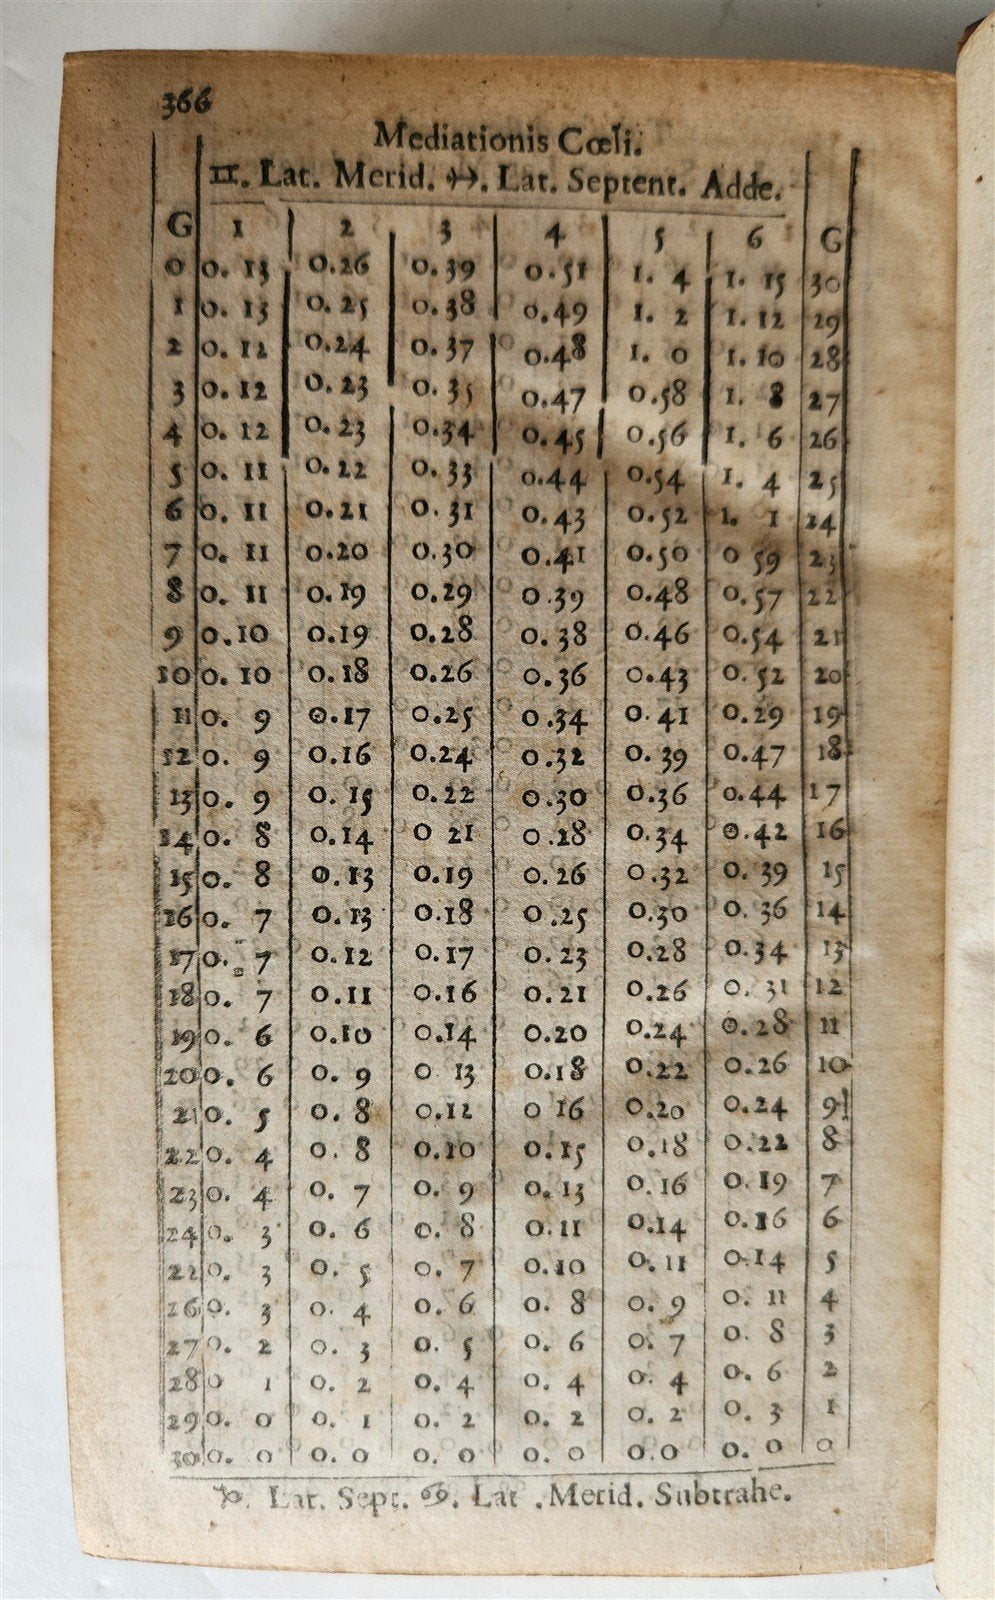 366
Mediationis Cœli.
♊. Lat. Merid. ♐. Lat. Septent. Adde.
G 1 2 3 4 5 6 G
0 0. 13 0.26 0.39 0.51 1. 4 1. 15 30
1 0. 13 0.25 0.38 0.49 1. 2 1. 12 29
2 0. 12 0.24 0.37 0.48 1. 0 1. 10 28
3 0. 12 0.23 0.35 0.47 0.58 1. 8 27
4 0. 12 0.23 0.34 0.45 0.56 1. 6 26
5 0. 11 0.22 0.33 0.44 0.54 1. 4 25
6 0. 11 0.21 0.31 0.43 0.52 1. 1 24
7 0. 11 0.20 0.30 0.41 0.50 0 59 23
8 0. 11 0.19 0.29 0.39 0.48 0.57 22
9 0.10 0.19 0.28 0.38 0.46 0.54 21
10 0. 10 0.18 0.26 0.36 0.43 0.52 20
11 0. 9 0.17 0.25 0.34 0.41 0.29 19
12 0. 9 0.16 0.24 0.32 0.39 0.47 18
13 0. 9 0. 15 0.22 0.30 0.36 0.44 17
14 0. 8 0.14 0 21 0.28 0.34 0.42 16
15 0. 8 0.13 0.19 0.26 0.32 0. 39 15
16 0. 7 0.13 0.18 0.25 0.30 0. 36 14
17 0. 7 0.12 0.17 0.23 0.28 0.34 13
18 0. 7 0.11 0.16 0.21 0.26 0. 31 12
19 0. 6 0.10 0.14 0.20 0.24 0.28 11
20 0. 6 0. 9 0 13 0.18 0.22 0.26 10
21 0. 5 0. 8 0.12 0 16 0.20 0.24 9
22 0. 4 0. 8 0.10 0.15 0.18 0.22 8
23 0. 4 0. 7 0. 9 0. 13 0.16 0.19 7
24 0. 3 0. 6 0. 8 0.11 0.14 0.16 6
22 0. 3 0. 5 0. 7 0.10 0. 11 0.14 5
26 0. 3 0. 4 0. 6 0. 8 0. 9 0. 11 4
27 0. 2 0. 3 0. 5 0. 6 0. 7 0. 8 3
28 0 1 0. 2 0. 4 0. 4 0. 4 0. 6 2
29 0. 0 0. 1 0. 2 0. 2 0. 2 0. 3 1
30 0. 0 0. 0 0. 0 0. 0 0.0 0. 0 0
♑. Lat. Sept. ♋. Lat .Merid. Subtrahe.